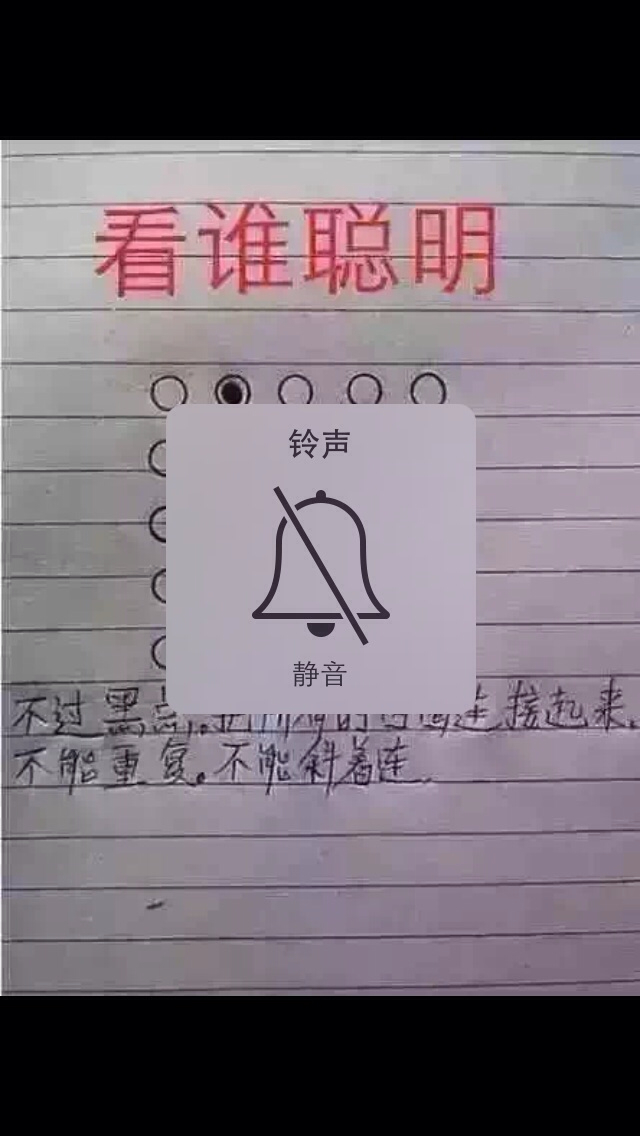 看谁聪明
铃声
静音
不过黑点。连接起来。
不能重复。不能斜着连.